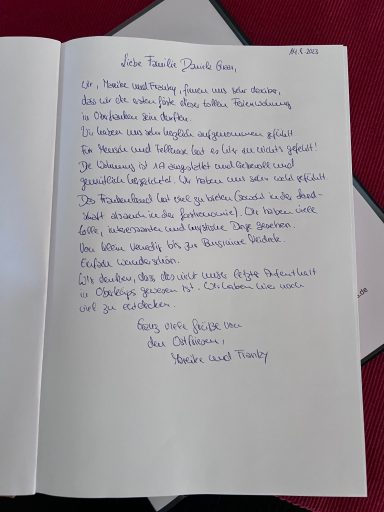 14.8.2023
Liebe Familie Daniela
Wir, Mareike und Franky, freuen uns sehr darüber,
dass wir die ersten Gäste dieser tollen Ferienwohnung
in sein durften.
Wir haben uns sehr herzlich aufgenommen gefühlt.
Für Mensch und Fellnase hat es hier an nichts gefehlt!
Die Wohnung ist 1A ausgestattet und liebevoll und
gemütlich hergerichtet. Wir haben uns sehr wohl gefühlt.
Das Frankenland hat viel zu bieten (sowohl in der Land-
schaft als auch in der Gastronomie). Wir haben viele
tolle, interessante und mystische Dinge gesehen.
Von klein Venedig bis zur
Einfach wunderschön.
Wir denken, dass das nicht unser letzter Aufenthalt
in gewesen ist. Wir haben hier noch
viel zu entdecken.
Ganz viele Grüße von
den Ostfriesen,
Mareike und Franky